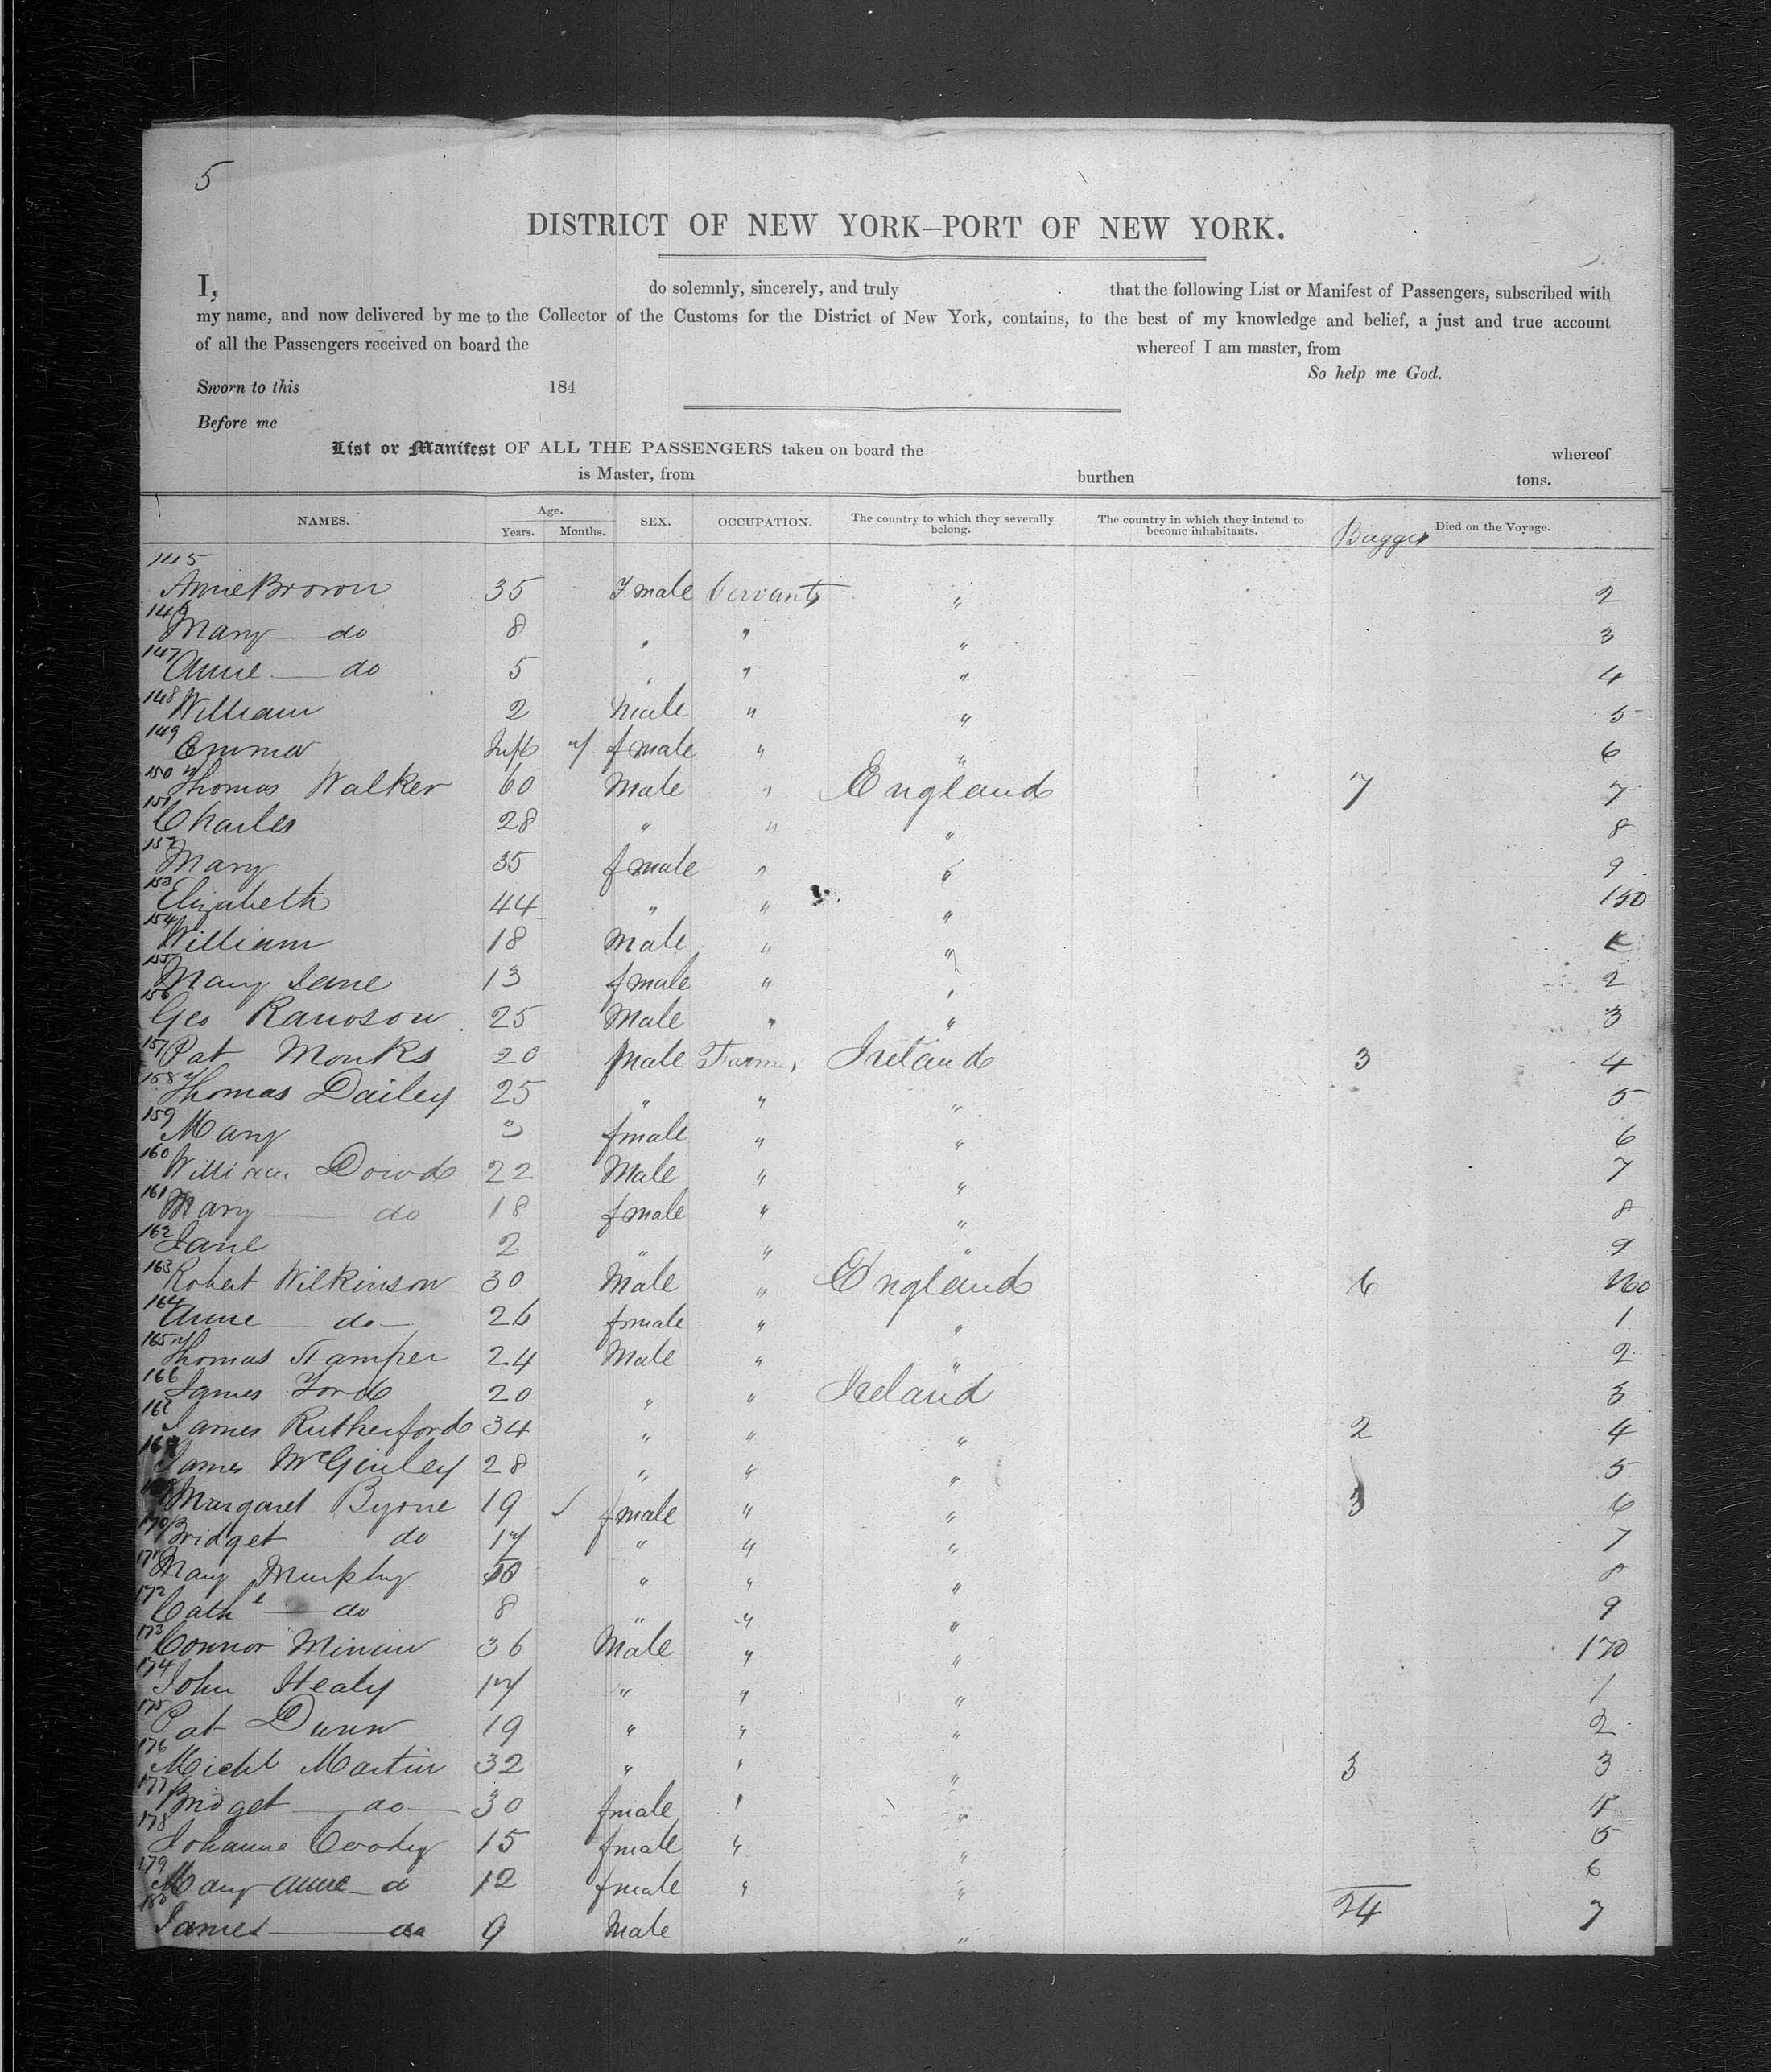 5
DISTRICT OF NEW YORK–PORT OF NEW YORK.
I, do solemnly, sincerely, and truly that the following List or Manifest of Passengers, subscribed with
my name, and now delivered by me to the Collector of the Customs for the District of New York, contains, to the best of my knowledge and belief, a just and true account
of all the Passengers received on board the whereof I am master, from
So help me God.
Sworn to this 184
Before me
List or Manifest OF ALL THE PASSENGERS taken on board the whereof
is Master, from burthen tons.
NAMES. Age. Years. Months. SEX. OCCUPATION. The country to which they severally belong. The country in which they intend to become inhabitants. Died on the Voyage.
145 Anne Brown 35 F.male Servants " 2
146 Mary — do 8 " " " 3
147 Anne — do 5 " " " 4
148 William 2 Male " " 5
149 Emma Inft f male " " 6
150 Thomas Walker 60 Male " England 7 7
151 Charles 28 " " " 8
152 Mary 35 f male " " 9
153 Elizabeth 44 " " " 150
154 William 18 Male " "
155 Mary Jane 13 f male " " 2
156 Geo 25 Male " " 3
157 Pat Monks 20 Male Farm Ireland 3 4
158 Thomas Dailey 25 " " " 5
159 Mary 3 fmale " " 6
160 William Dowd 22 Male " " 7
161 Mary — do 18 fmale " " 8
162 Jane 2 " " " 9
163 Robert Wilkinson 30 Male " England 6 160
164 Anne — do — 26 fmale " " 1
165 Thomas Stamper 24 Male " " 2
166 James Ford 20 " " Ireland 3
167 James Rutherford 34 " " " 2 4
168 James McGinley 28 " " " 5
Margaret Byrne 19 ✓ fmale " " 3 6
170 Bridget do 17 " " " 7
171 Mary Murphy 10 " " " 8
172 Cathe — do 8 " " " 9
173 Connor 36 Male " " 170
174 John Healy 17 " " " 1
175 Pat Dunn 19 " " " 2
176 Michl Martin 32 " " " 3 3
177 Bridget — do — 30 fmale " "
178 Johanna 15 fmale " " 5
179 Mary Anne — d 12 fmale " " 6
180 James — do 9 Male " 24 7